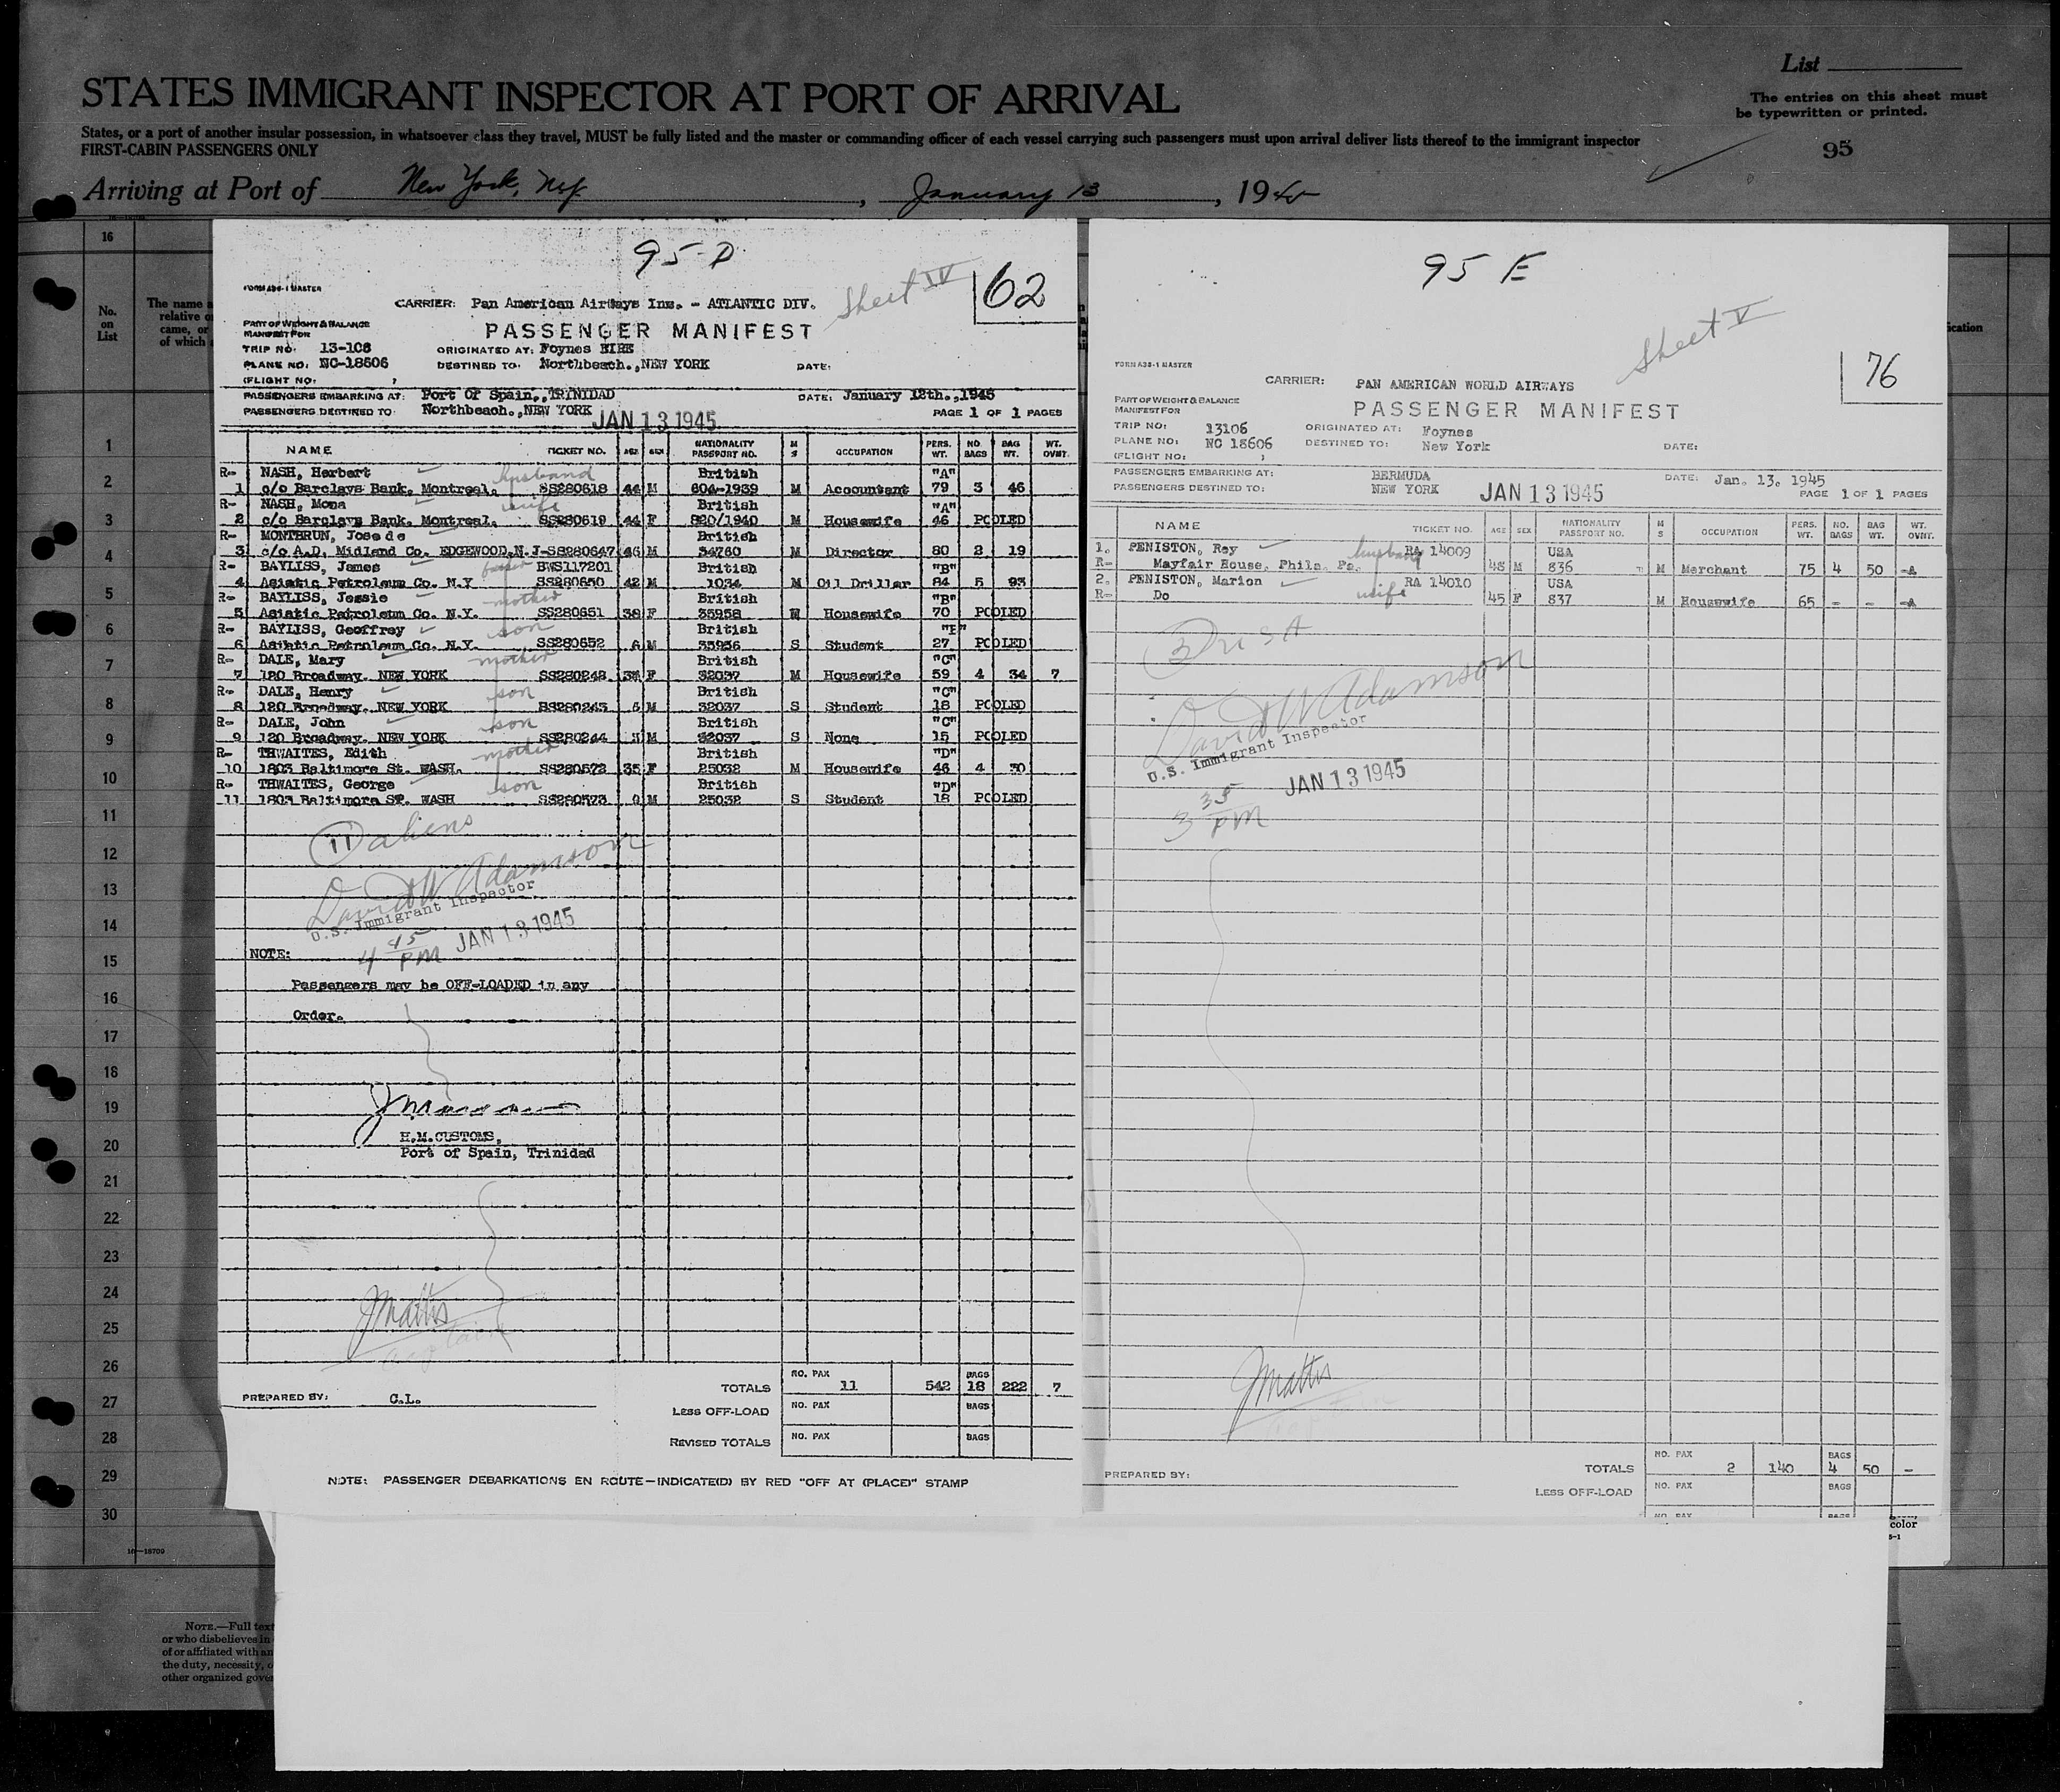 List
STATES IMMIGRANT INSPECTOR AT PORT OF ARRIVAL
The entries on this sheet must
be typewritten or printed.
States, or a port of another insular possession, in whatsoever class they travel, MUST be fully listed and the master or commanding officer of each vessel carrying such passengers must upon arrival deliver lists thereof to the immigrant inspector
FIRST-CABIN PASSENGERS ONLY
95
Arriving at Port of New York, N.Y. , January 13 , 1945
No. on List
The name a
relative o
came, or
of which
ication
16
1
2
3
4
5
6
7
8
9
10
11
12
13
14
15
16
17
18
19
20
21
22
23
24
25
26
27
28
29
30
16—18709
NOTE.—Full text
or who disbelieves in
of or affiliated with an
the duty, necessity, o
other organized gove
95-D
Sheet IV
62
FORM A36-1 MASTER
CARRIER: Pan American Airways Inc. - ATLANTIC DIV.
PART OF WEIGHT & BALANCE
MANIFEST FOR
PASSENGER MANIFEST
TRIP NO: 13-106 ORIGINATED AT: Foynes EIRE
PLANE NO: NC-18606 DESTINED TO: Northbeach.,NEW YORK DATE:
(FLIGHT NO: )
PASSENGERS EMBARKING AT: Port Of Spain,,TRINIDAD DATE: January 12th.,1945
PASSENGERS DESTINED TO: Northbeach.,NEW YORK JAN 13 1945 PAGE 1 OF 1 PAGES
NAME TICKET NO. AGE SEX NATIONALITY PASSPORT NO. M S OCCUPATION PERS. WT. NO. BAGS BAG WT. WT. OVNT.
R- NASH, Herbert husband British "A"
1 c/o Barclays Bank, Montreal. SS280618 44 M 604-1939 M Accountant 79 3 46
R- NASH, Mona wife British "A"
2 c/o Barclays Bank, Montreal. SS280619 44 F 820/1940 M Housewife 46 POOLED
R- MONTBRUN, Jose de British
3 c/o A.D. Midland Co. EDGEWOOD,N.J-SS280647 46 M 34760 M Director 80 2 19
R- BAYLISS, James father BWS117201 British "B"
4 Asiatic Petroleum Co. N.Y SS280650 42 M 1034 M Oil Driller 84 5 93
R- BAYLISS, Jessie mother British "B"
5 Asiatic Petroleum Co. N.Y. SS280651 38 F 35958 M Housewife 70 POOLED
R- BAYLISS, Geoffrey son British
6 Asiatic Petroleum Co. N.Y. SS280652 6 M 35956 S Student 27 POOLED
R- DALE, Mary mother British "C"
7 120 Broadway. NEW YORK SS280242 F 32037 M Housewife 59 4 34 7
R- DALE, Henry son British "C"
8 120 Broadway. NEW YORK SS280243 M 32037 S Student 18 POOLED
R- DALE, John son British "C"
9 120 Broadway. NEW YORK SS280244 M 32037 S None 15 POOLED
R- THWAITES, Edith mother British "D"
10 1803 Baltimore St. WASH. SS280572 35 F 25032 M Housewife 46 4 30
R- THWAITES, George son British "D"
11 1803 Baltimore ST. WASH SS280573 M 25032 S Student 18 POOLED
11 aliens
David W Adamson
U.S. Immigrant Inspector
4 45 PM JAN 13 1945
NOTE:
Passengers may be OFF-LOADED in any
Order.
H.M.CUSTOMS,
Port of Spain, Trinidad
J Mattis
Captain
PREPARED BY: C.L.
TOTALS NO. PAX 11 542 BAGS 18 222 7
LESS OFF-LOAD NO. PAX BAGS
REVISED TOTALS NO. PAX BAGS
NOTE: PASSENGER DEBARKATIONS EN ROUTE—INDICATE(D) BY RED "OFF AT (PLACE)" STAMP
95 E
Sheet V
76
FORM A36-1 MASTER
CARRIER: PAN AMERICAN WORLD AIRWAYS
PART OF WEIGHT & BALANCE
MANIFEST FOR
PASSENGER MANIFEST
TRIP NO: 13106 ORIGINATED AT: Foynes
PLANE NO: NC 18606 DESTINED TO: New York DATE:
(FLIGHT NO: )
PASSENGERS EMBARKING AT: BERMUDA DATE: Jan. 13. 1945
PASSENGERS DESTINED TO: NEW YORK JAN 13 1945 PAGE 1 OF 1 PAGES
NAME TICKET NO. AGE SEX NATIONALITY PASSPORT NO. M S OCCUPATION PERS. WT. NO. BAGS BAG WT. WT. OVNT.
1. PENISTON, Roy husband RA 14009 USA
R- Mayfair House, Phila. Pa. 48 M 836 M Merchant 75 4 50 -A
2. PENISTON, Marion wife RA 14010 USA
R- Do 45 F 837 M Housewife 65 - - -A
USA
David W Adamson
U.S. Immigrant Inspector
JAN 13 1945
3 35 PM
J Mattis
PREPARED BY:
TOTALS NO. PAX 2 140 BAGS 4 50 -
LESS OFF-LOAD NO. PAX BAGS
NO. PAX BAGS
color